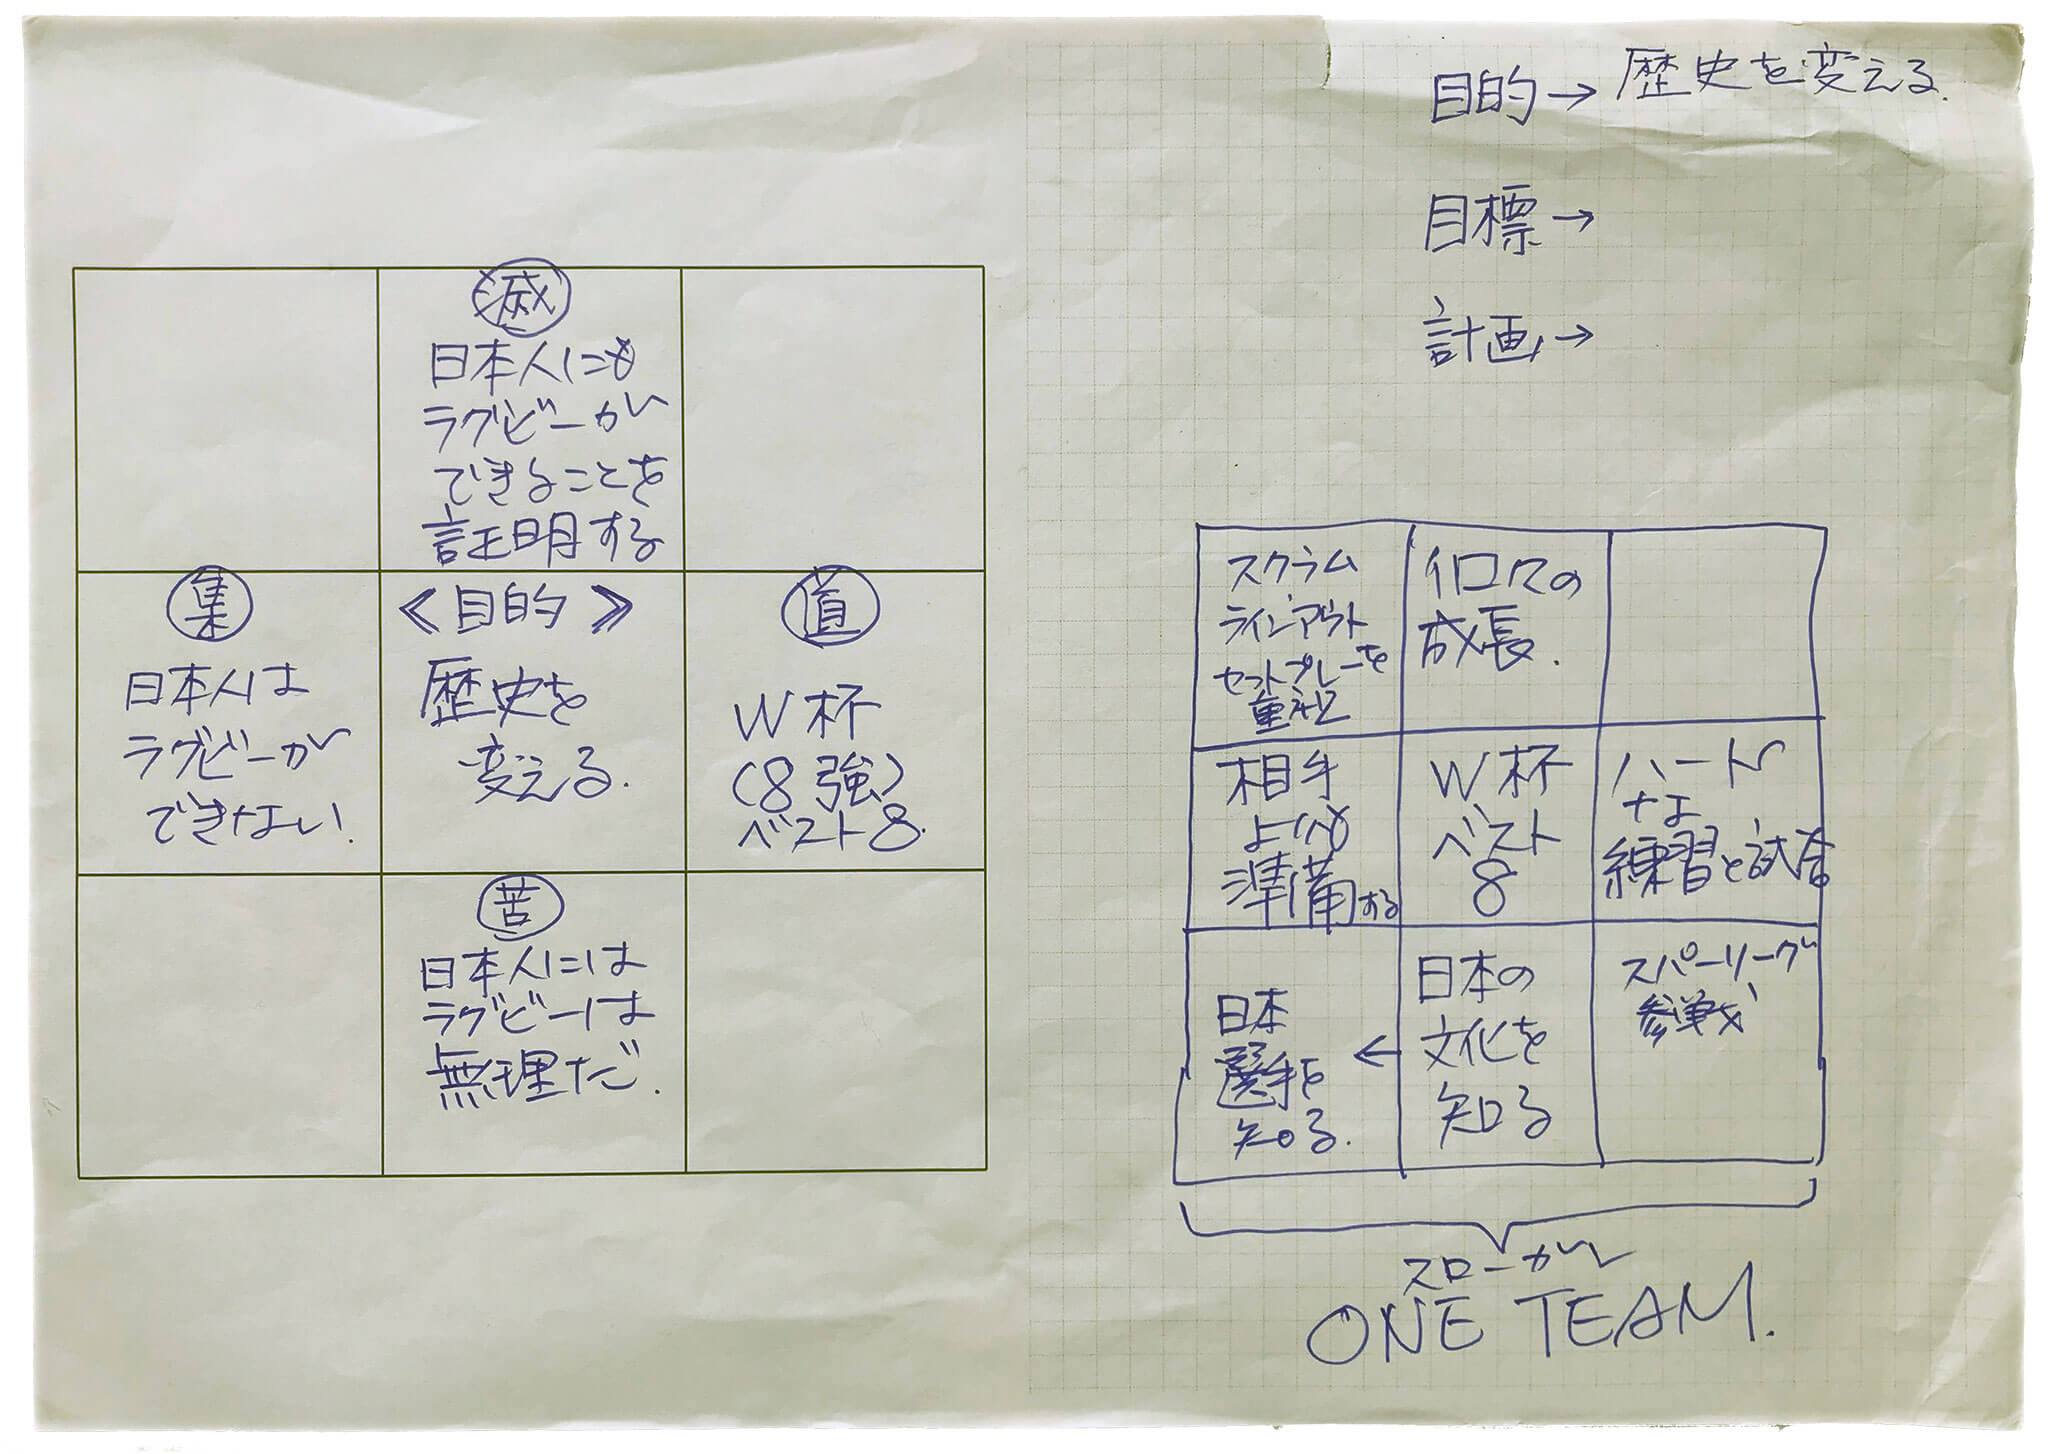 滅
日本人にも
ラグビーが
できることを
証明する
集
日本人は
ラグビーが
できない.
《目的》
歴史を
変える.
道
W杯
(8強)
ベスト8.
苦
日本人には
ラグビーは
無理だ.
目的→歴史を変える.
目標→
計画→
スクラム
ラインアウト
セットプレーを
重視
個々の
成長.
相手
よりも
準備する
W杯
ベスト
8
ハード
な
練習と試合
日本
選手を
知る.
←
日本の
文化を
知る
スパーリーグ
参戦
スローガン
ONE TEAM.